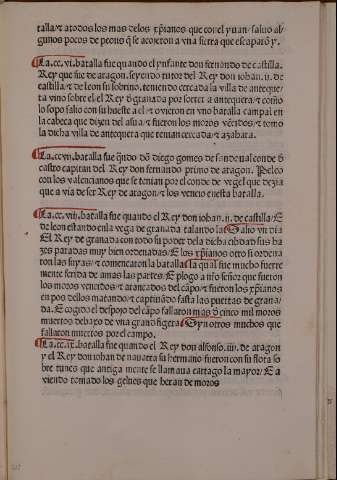 talla/ & a todos los mas delos xp̄ianos que con el yuan/ saluo al/
gunos pocos de peons q̄ se acojeron a vna sierra que escaparō y.
La.cc.vi.batalla fue quando el ynfante don fernando de castilla.
Rey que fue de aragon. seyendo tutor del Rey don iohan.ij.de
castilla/ & de leon su sobrino. teniendo cercada la villa de anteque/
ra vino sobre el el Rey d̄ granada por socorrer a antequera/ & como
lo sopo salio con su hueste a el/ & ovieron en vno batalla campal en
la cabeça que dizen del asna/ & fueron los moros vēcidos/ & tomo
la dicha villa de antequera que tenian cercada/ & azahara.
La.cc.vij. batalla fue q̄ndo dō diego gomes de sandoual conde d̄
castro capitan del Rey don fernando primo de aragon. Peleo
con los valencianos que se tenian por el conde de vrgel que dezia
que a via de ser Rey de aragon/ & los vencio enesta batalla.
La.cc.viij.batalla fue quando el Rey don iohan.ij.de castilla/ E
de leon estando en la vega de granada talando la Salio vn dia
El Rey de granada con todo su poder dela dicha cibdad sus ha
zes paradas muy bien ordenadas/ E los xp̄ianos otro si ordena
ron las suyas/ & comencaron la batalla la qual fue mucho fuerte
mente ferida de amas las partes/ E plogo a nr̄o señor que fueron
los moros vencidos/ & arancados del cāpo/ & fueron los xp̄ianos
en pos dellos matando/ & captiuādo fasta las puertas de grana/
da. E cogido el despojo del cāpo fallaron mas d̄ cinco mil moros
muertos debaxo de vna grand figera Syn otros muchos que
fallaron muertos por el campo.
La.cc.ix.batalla fue quando el Rey don alfonso.iiij. de aragon
y el Rey don iohan de nauarra su hermano fueron con su flota so
bre tunes que antigua mente se llamaua cartago la mayor/ E a
viendo tomado los gelues que heran de moros